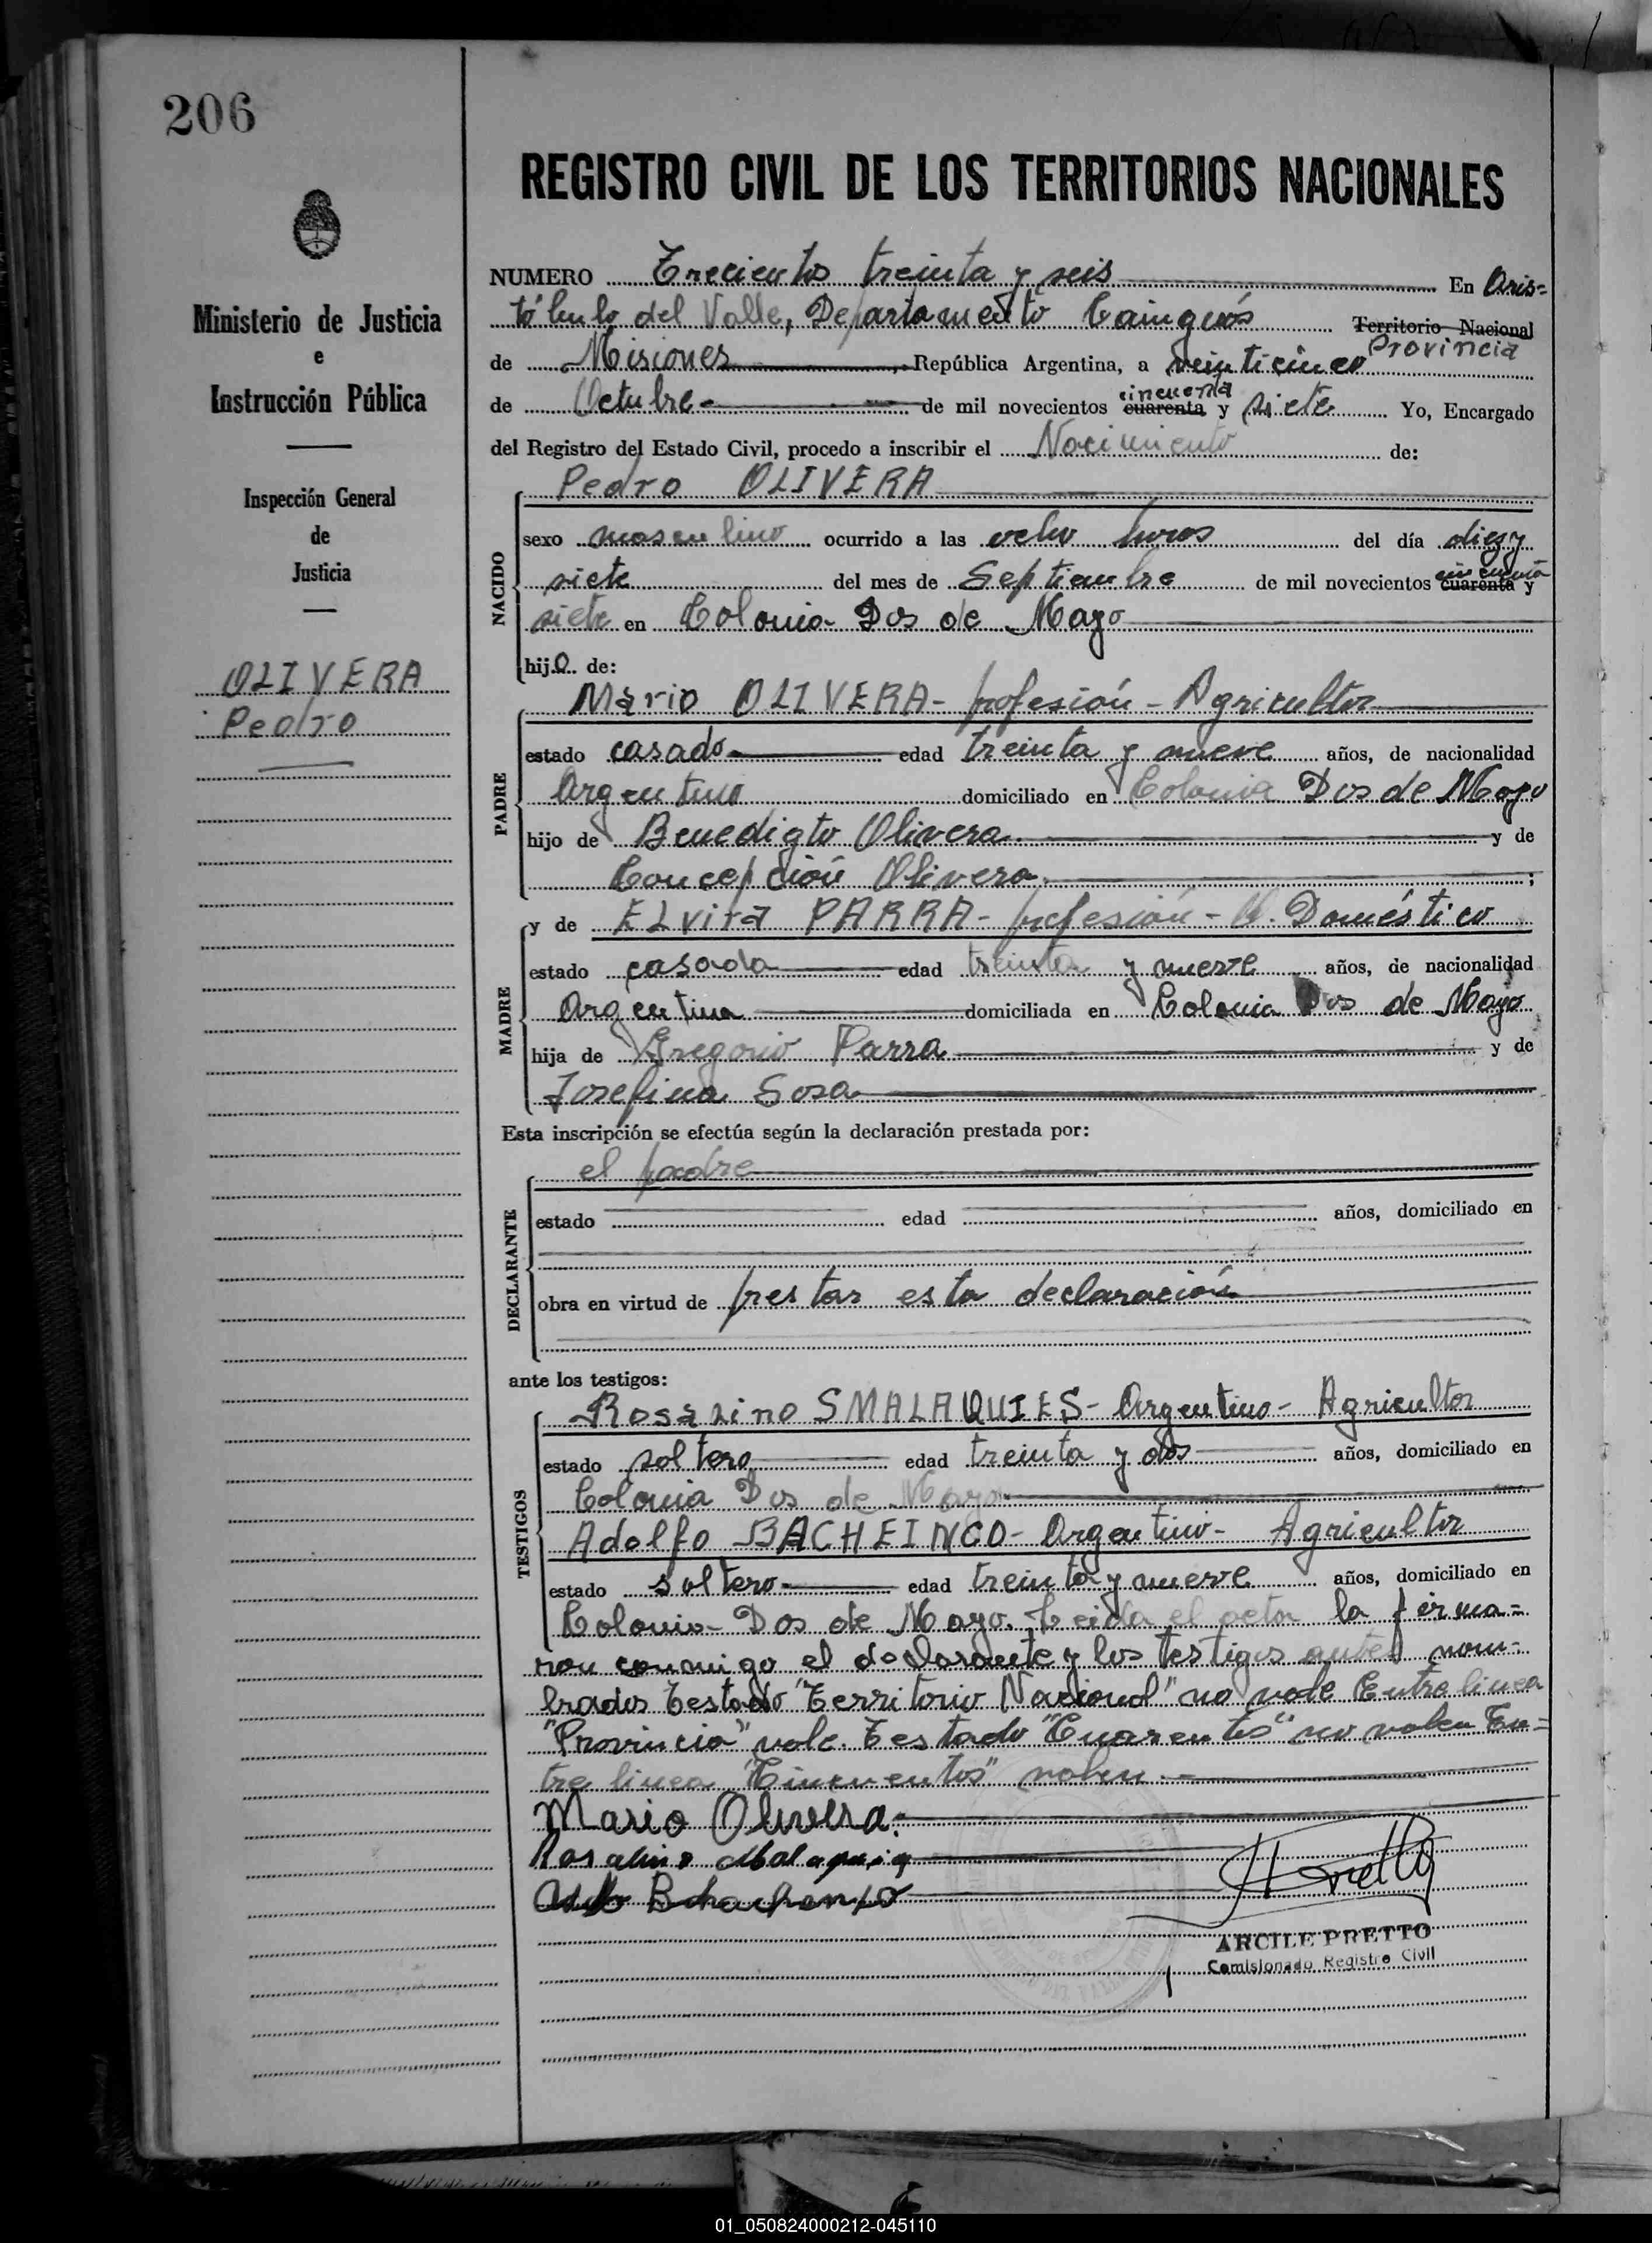 206
Ministerio de Justicia
e
Instrucción Pública
Inspección General
de
Justicia
OLIVERA
Pedro
REGISTRO CIVIL DE LOS TERRITORIOS NACIONALES
NUMERO Trecientos treinta y seis En Aris=
tóbulo del Valle, Departamento Cainguás Territorio Nacional
Provincia
de Misiones República Argentina, a veinticinco
de Octubre de mil novecientos cuarenta cincuenta y siete Yo, Encargado
del Registro del Estado Civil, procedo a inscribir el Nacimiento de:
NACIDO
Pedro OLIVERA
sexo masculino ocurrido a las ocho horas del día diez y
siete del mes de Septiembre de mil novecientos cuarenta cincuenta y
siete en Colonia Dos de Mayo
hijo de:
PADRE
Mario OLIVERA- profesión - Agricultor
estado casado edad treinta y nueve años, de nacionalidad
Argentino domiciliado en Colonia Dos de Mayo
hijo de Benedigto Olivera y de
Concepción Olivera ;
MADRE
y de ELvira PARRA- profesión - Q. Doméstico
estado casada edad treinta y nueve años, de nacionalidad
Argentina domiciliada en Colonia Dos de Mayo
hija de Gregorio Parra y de
Josefina Sosa
Esta inscripción se efectúa según la declaración prestada por:
DECLARANTE
el padre
estado edad años, domiciliado en
obra en virtud de prestar esta declaración
ante los testigos:
TESTIGOS
Rosalino SMALAQUIES- Argentino- Agricultor
estado soltero edad treinta y dos años, domiciliado en
Colonia Dos de Mayo
Adolfo BACHEINGO- Argentino- Agricultor
estado soltero edad treinta y nueve años, domiciliado en
Colonia Dos de Mayo. Leida el acta la firma=
ron conmigo el declarante y los testigos antes nom-
brados Testado "Territorio Nacional" no vale Entre linea
"Provincia" vale. Testado "Cuarentas" no valen En=
tre linea "Cincuentas" valen.-
Mario Olivera.
Rosalino
ARCILE PRETTO
Comisionado Registro Civil
01_050824000212-045110